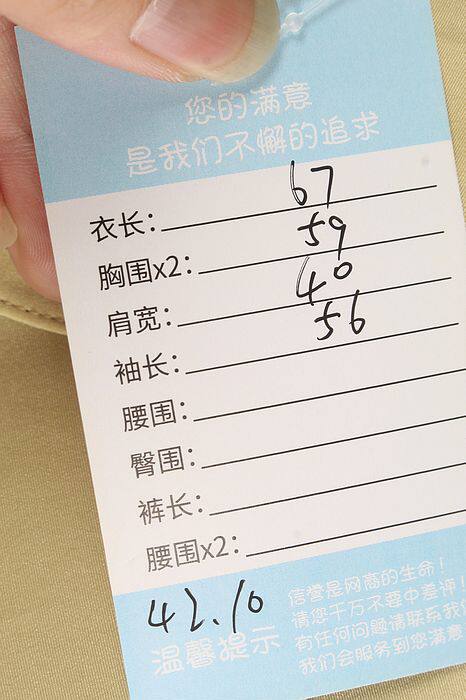 您的满意
是我们不懈的追求
衣长: 67
胸围x2: 59
肩宽: 40
袖长: 56
腰围:
臀围:
裤长:
腰围x2:
42.10
温馨提示
信誉是网商的生命!
请您千万不要中差评!
有任何问题请联系我
我们会服务到您满意